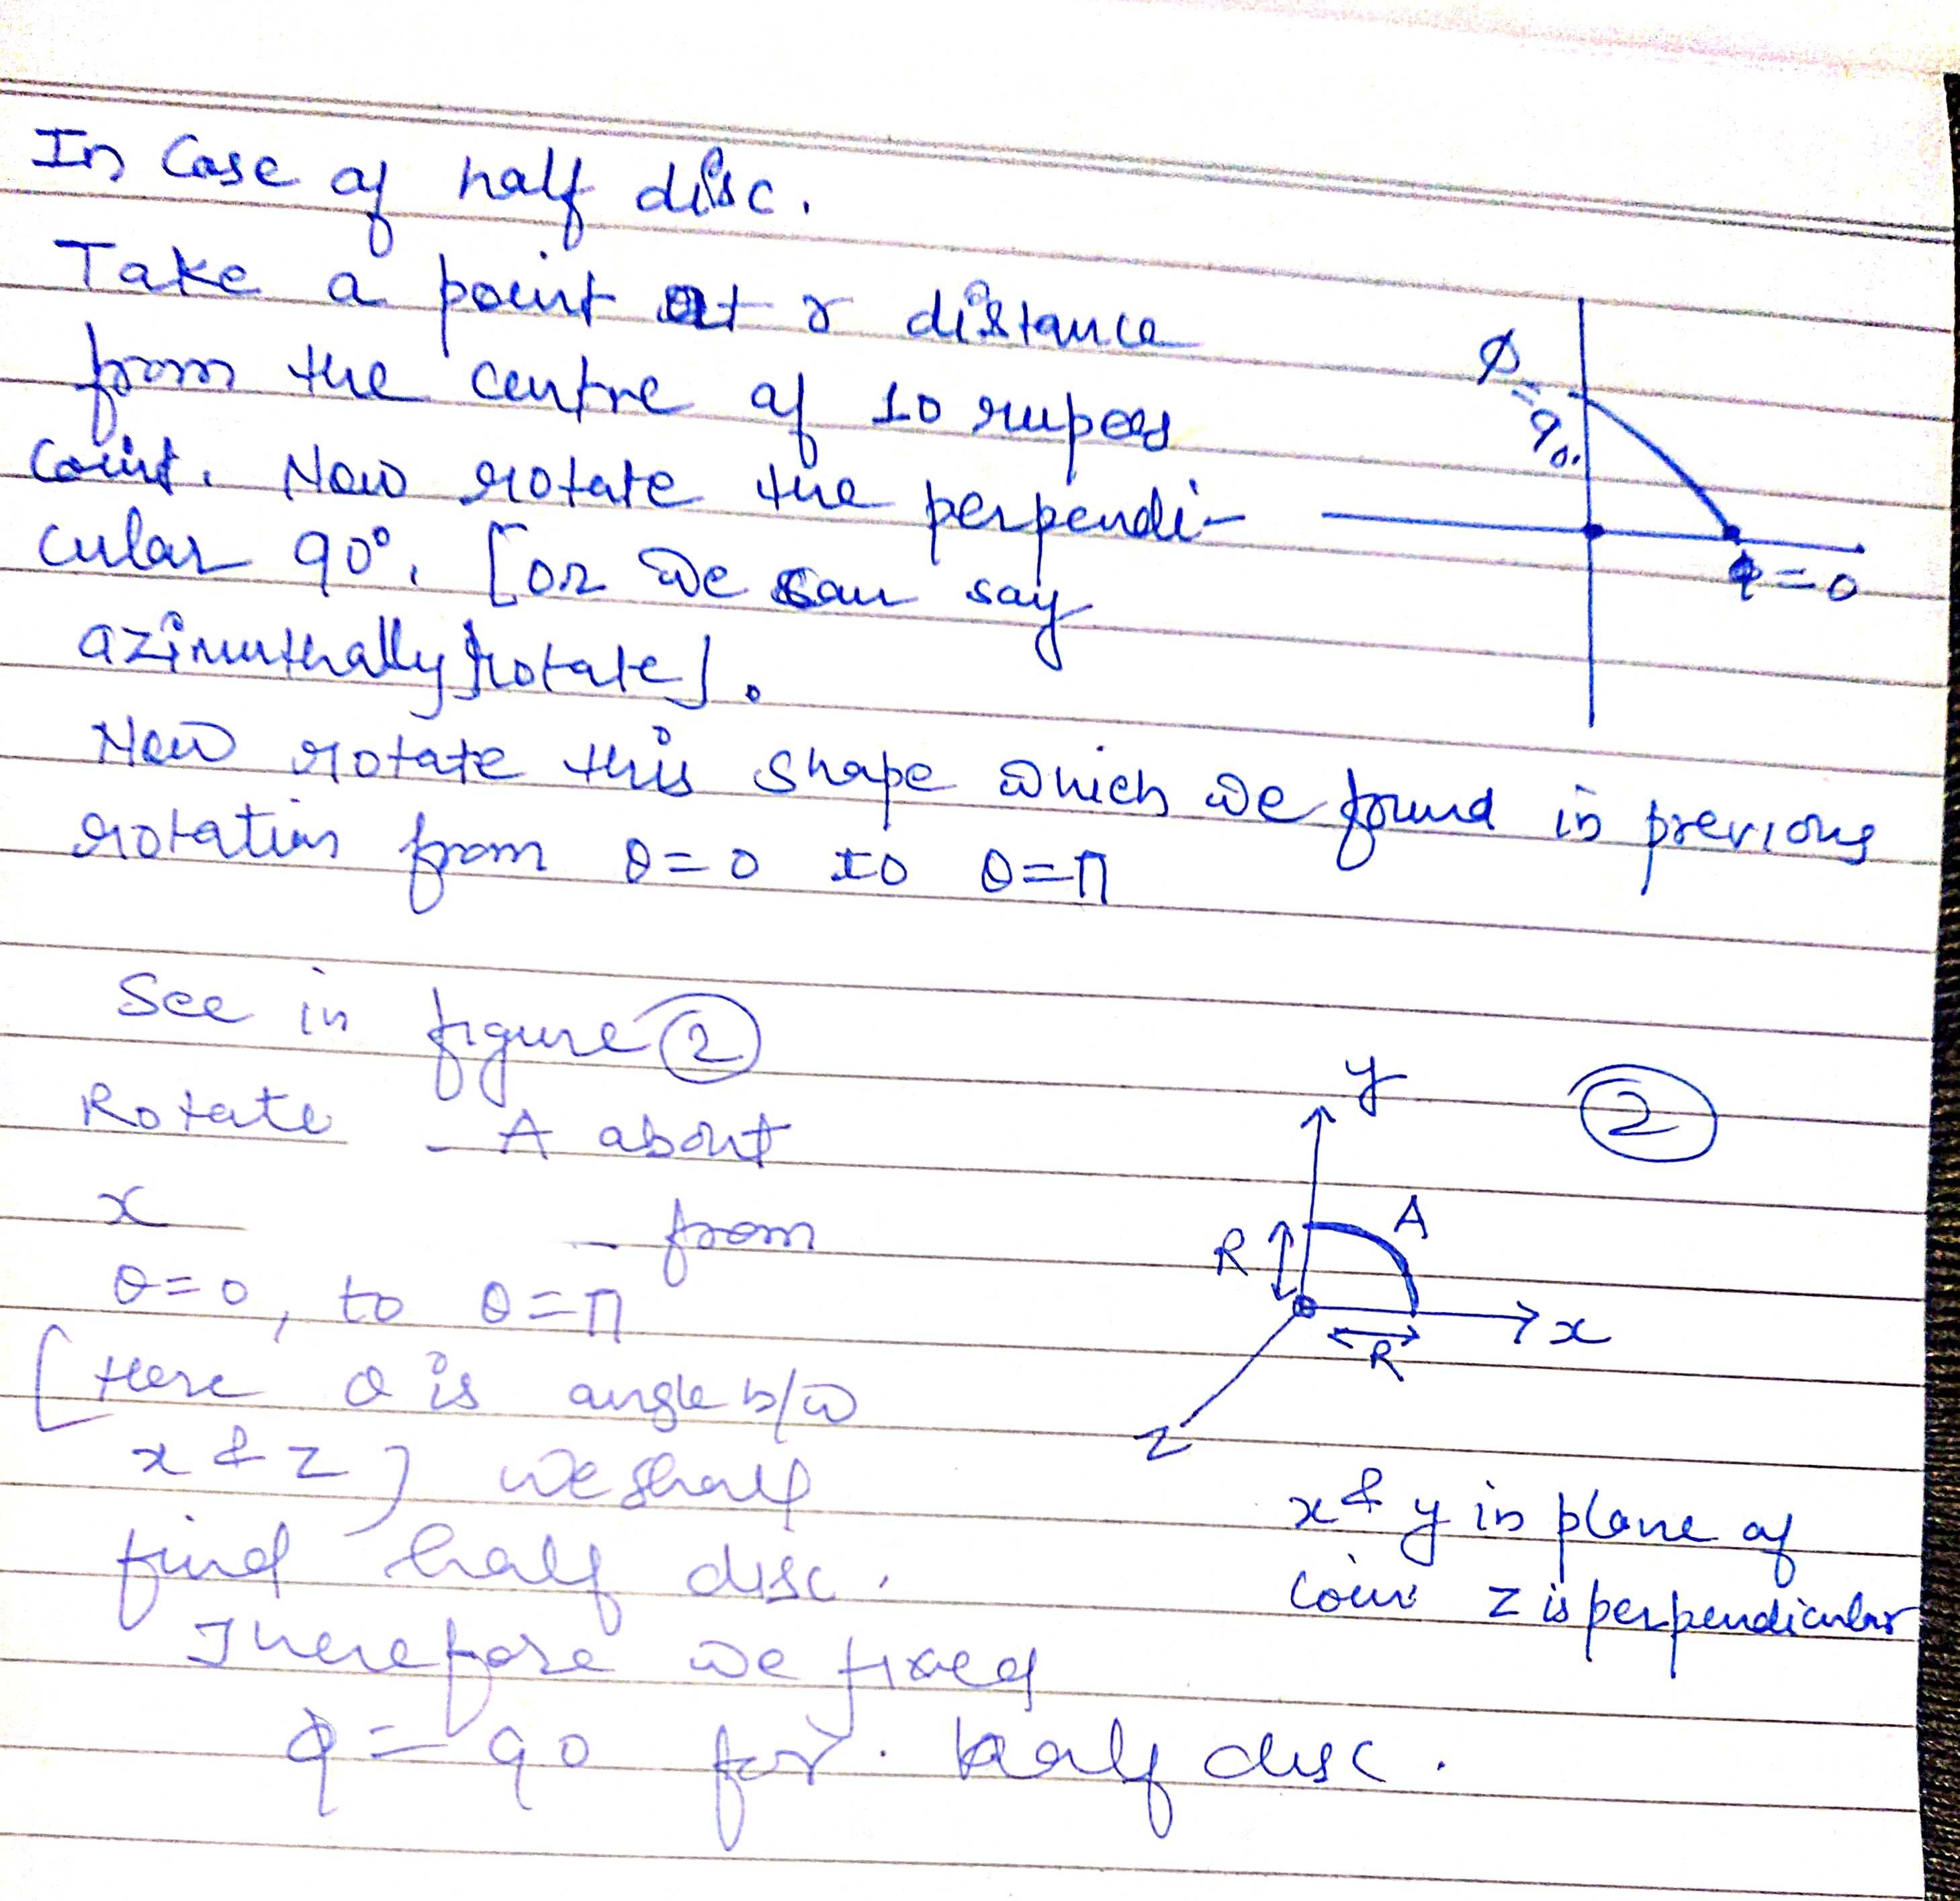 In Case of half disc.
Take a point at r distance
from the centre of 10 rupees
coint. Now rotate the perpendi-
cular 90°. [or we can say
azimuthally rotate].
Now rotate this shape which we found in previous
rotation from θ=0 to θ=π
ϕ=90.
ϕ=0
See in figure ②
Rotate - A about
x - from
θ=0, to θ=π
[Here θ is angle b/w
x & z] we shall
find half disc.
Therefore we fixed
ϕ = 90 for. half disc.
②
y
A
R
x
R
z
x & y in plane of
coin z is perpendicular